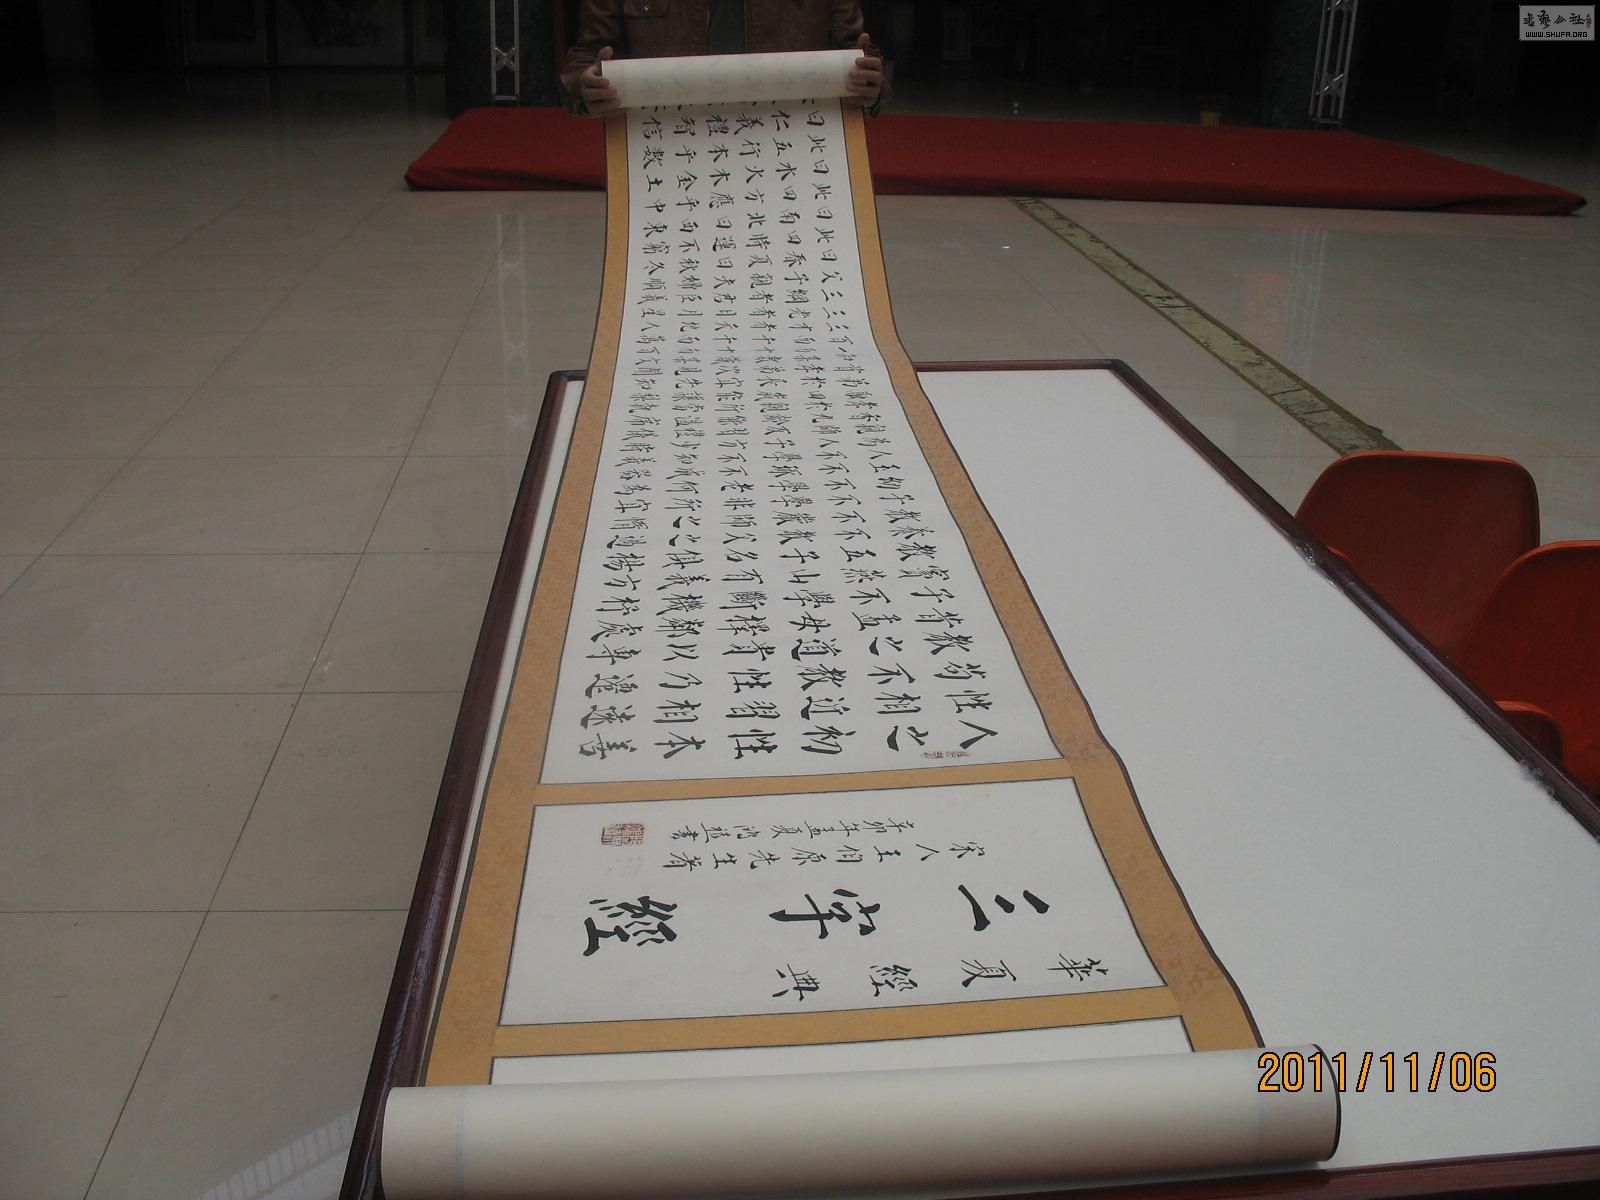 華夏經典
三字經
宋人王伯原先生著
辛卯年孟夏鴻書
人之初性本善
性相近習相遠
苟不教性乃遷
教之道貴以專
昔孟母擇鄰處
子不學斷機杼
竇燕山有義方
教五子名俱揚
養不教父之過
教不嚴師之惰
子不學非所宜
幼不學老何為
玉不琢不成器
人不學不知義
為人子方少時
親師友習禮儀
香九齡能溫席
孝於親所當執
融四歲能讓梨
弟於長宜先知
首孝弟次見聞
知某數識某文
一而十十而百
十而千千而萬
三才者天地人
三光者日月星
三綱者君臣義
父子親夫婦順
曰春夏曰秋冬
此四時運不窮
曰南北曰西東
此四方應乎中
曰水火木金土
此五行本乎數
曰仁義禮智信
2011/11/06
書藝公社
WWW.SHUFA.ORG